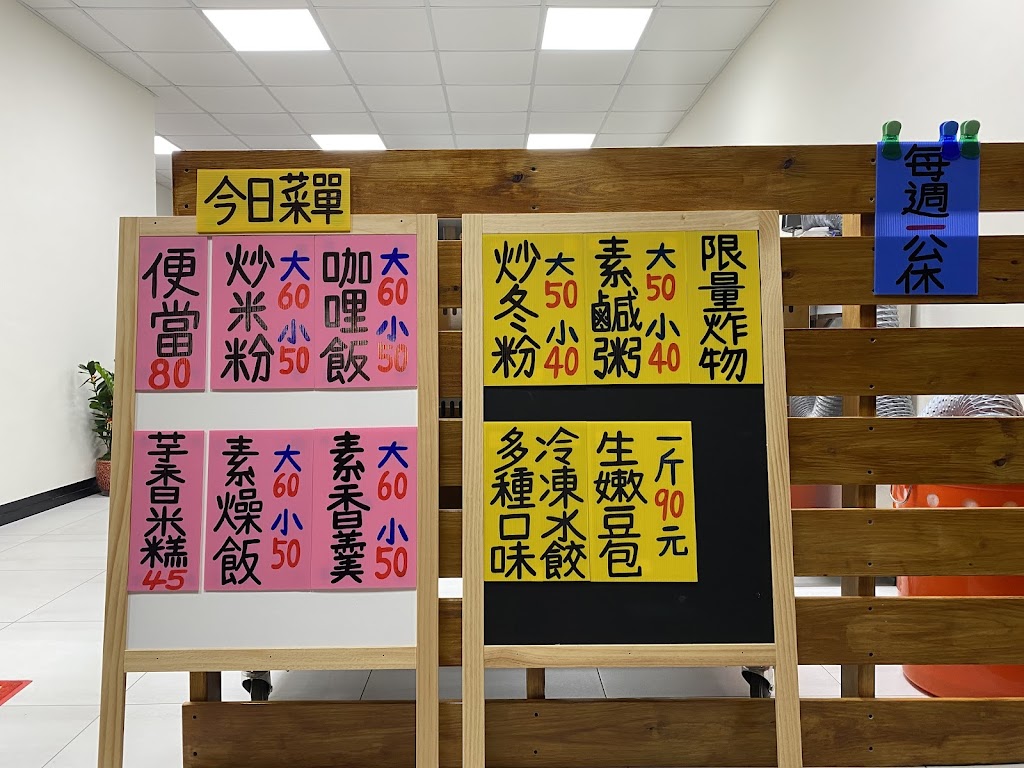 今日菜單
便當
80
炒米粉
大60 小50
咖哩飯
大60 小50
芋香米糕
45
素燥飯
大60 小50
素香羹
大60 小50
炒冬粉
大50 小40
素鹹粥
大50 小40
限量炸物
多種口味
冷凍水餃
生嫩豆包
一斤90元
每週一公休